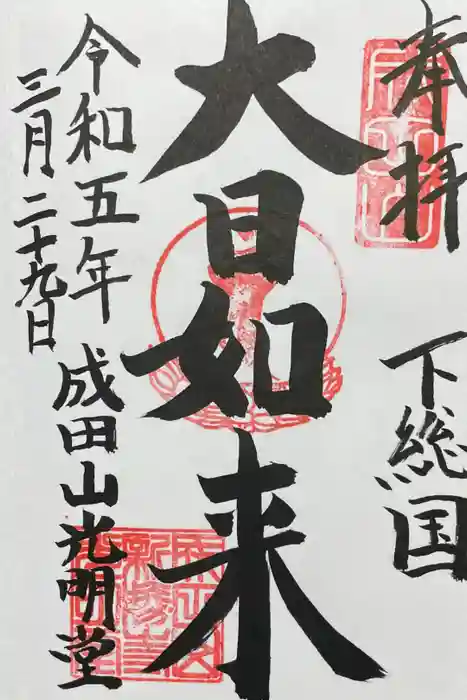 奉拝
下総国
大日如来
令和五年
三月二十九日
成田山光明堂